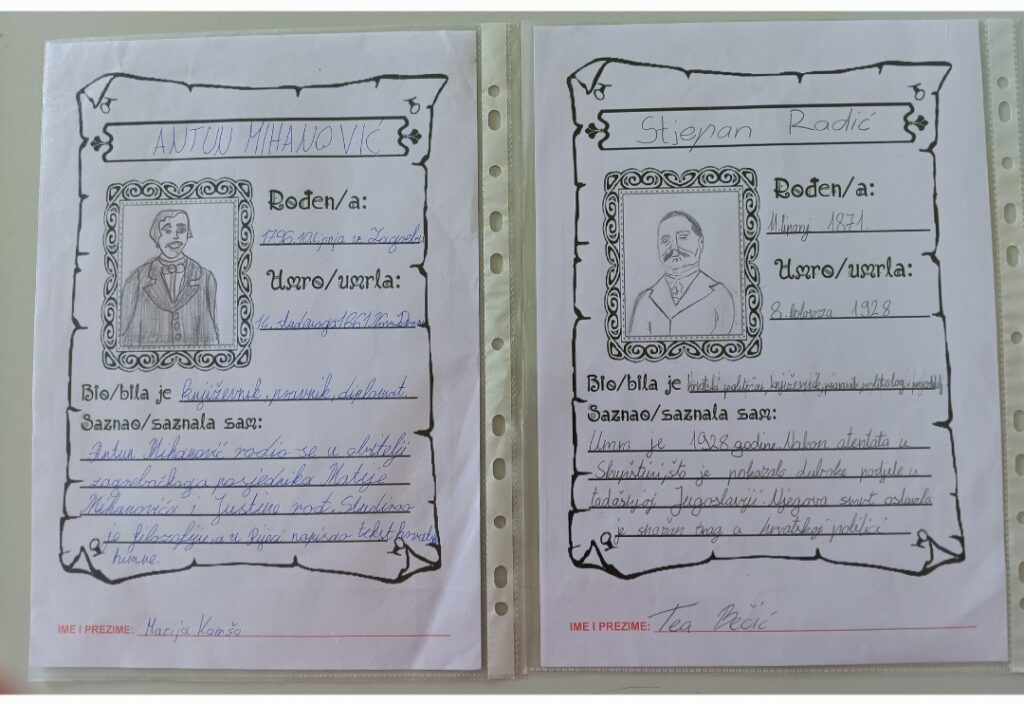 ANTUN MIHANOVIĆ
Rođen/a:
1796. 10 lipnja u Zagrebu
Umro/umrla:
14. studenoga 1861.
Bio/bila je književnik, pravnik, diplomat
Saznao/saznala sam:
Antun Mihanović rodio se u obitelji
zagrebačkoga posjednika Matije
Mihanovića i Justine rođ. Studirao
je filozofiju, a u Rijeci napisao tekst hrvatske
himne.
IME I PREZIME: Marija
Stjepan Radić
Rođen/a:
11. lipanj 1871.
Umro/umrla:
8. kolovoza 1928
Bio/bila je hrvatski političar, književnik, pravnik, politolog i
Saznao/saznala sam:
Umro je 1928. godine. Nakon atentata u
Skupštini, što je pokazalo duboke podjele u
tadašnjoj Jugoslaviji. Njegova smrt ostavila
je snažan trag u hrvatskoj politici
IME I PREZIME: Tea Bečić